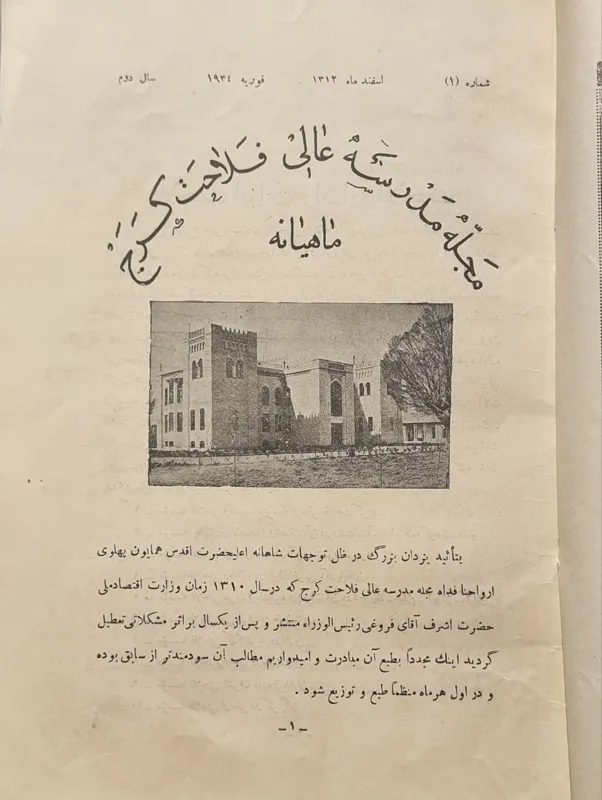 شماره (۱) اسفند ماه ۱۳۱۲ . فوریه ۱۹۳٤ سال دوم
مَجَلّهٔ مَدْرِسَهٔ عالی فَلاحَتْ کَرَجْ
ماهیانه
بتأئید یزدان بزرگ در ظل توجهات شاهانه اعلیحضرت اقدس همایون پهلوی
ارواحنا فداه مجله مدرسه عالی فلاحت کرج که در سال ۱۳۱۰ زمان وزارت اقتصاد ملی
حضرت اشرف آقای فروغی رئیس الوزراء منتشر و پس از یکسال بر اثر مشکلاتی تعطیل
گردید اینك مجدداً بطبع آن مبادرت و امیدواریم مطالب آن سودمندتر از سابق بوده
و در اول هر ماه منظماً طبع و توزیع شود .
-۱-